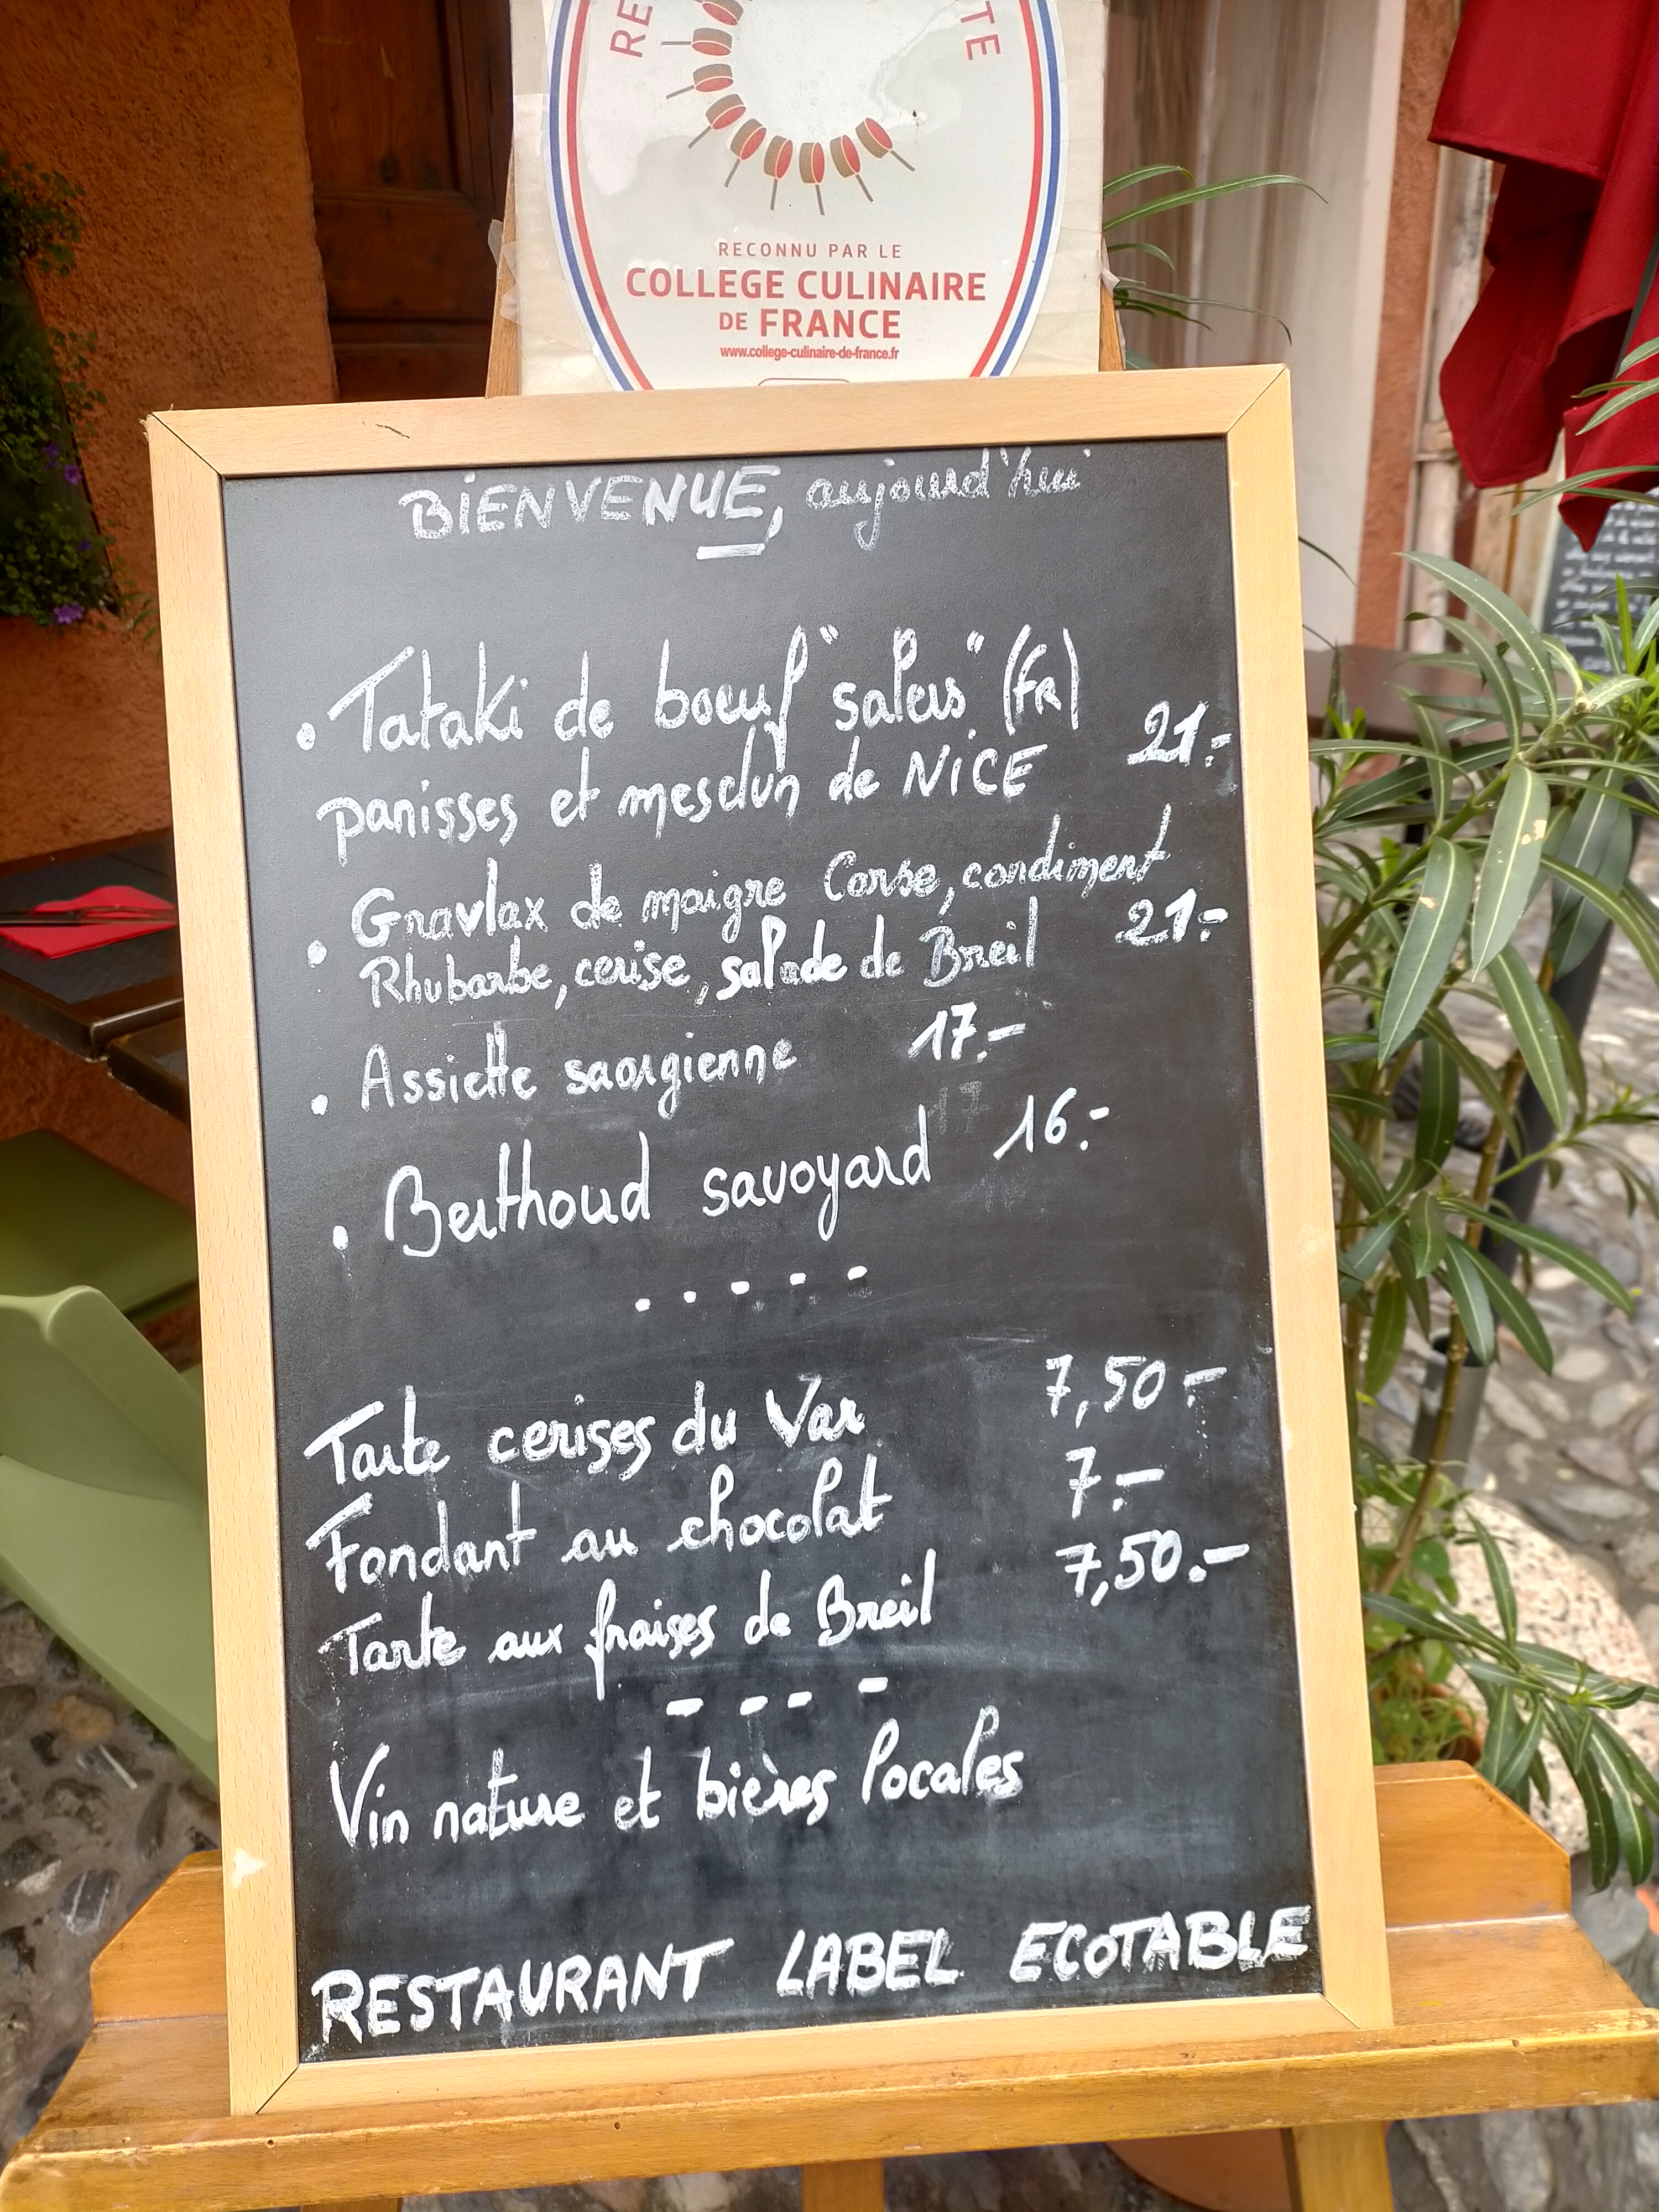 RE
TE
RECONNU PAR LE
COLLEGE CULINAIRE
DE FRANCE
www.college-culinaire-de-france.fr
BIENVENUE, aujourd'hui
• Tataki de boeuf "salers" (FR)
panisses et mesclun de NICE 21.-
Gravlax de maigre Corse, condiment
• Rhubarbe, cerise, salade de Breil 21.-
• Assiette saorgienne 17.-
17
• Berthoud savoyard 16.-
.....
Tarte cerises du Var 7,50.-
Fondant au chocolat 7.-
Tarte aux fraises de Breil 7,50.-
- - - -
Vin nature et bières locales
RESTAURANT LABEL ECOTABLE